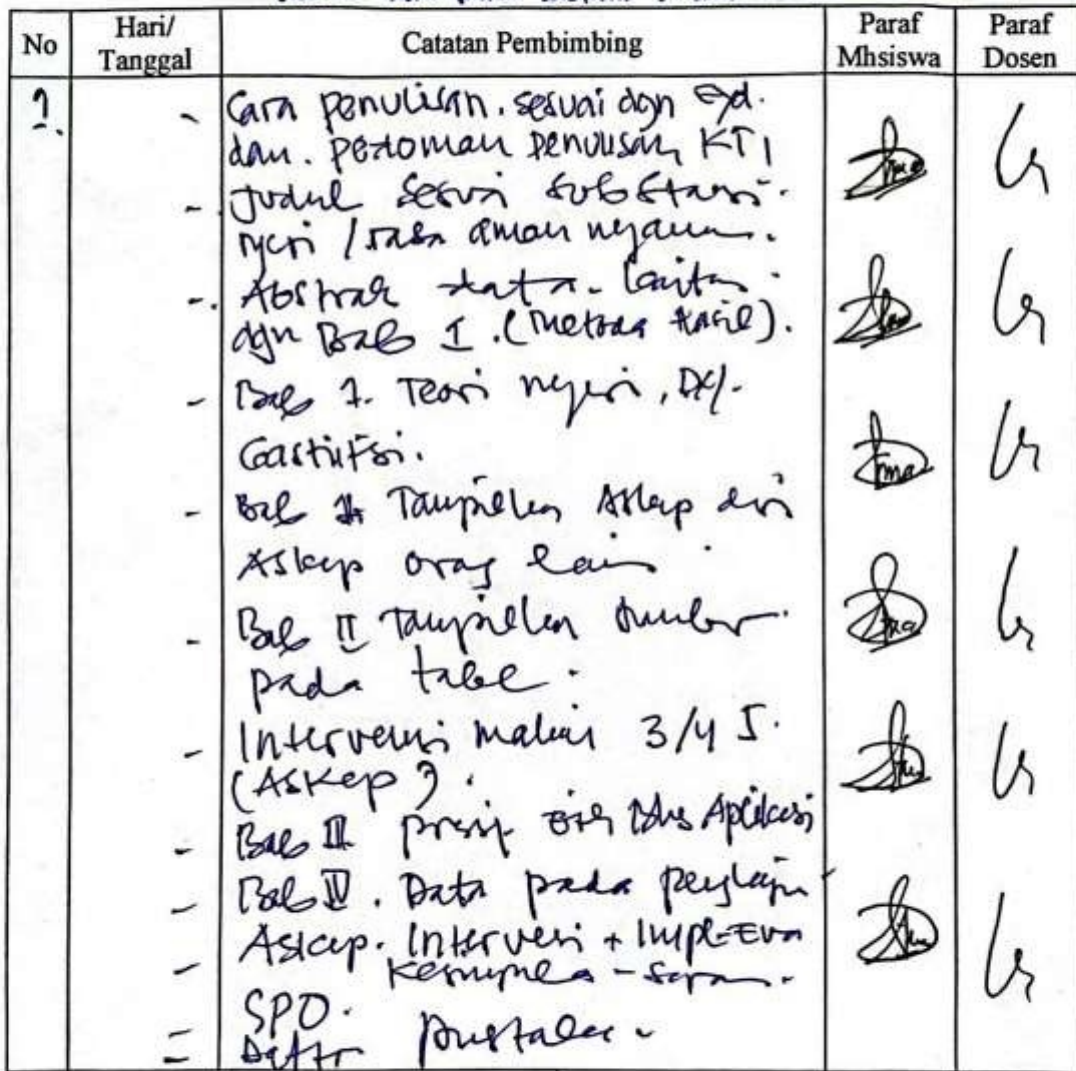 No Hari/ Tanggal Catatan Pembimbing Paraf Mhsiswa Paraf Dosen
1. - Cara penulisan. sesuai dgn Eyd.
dan. pedoman penulisan KTI
- Judul sesuai substansi.
nyeri / rasa aman nyaman.
- Abstrak
dgn Bab I. (metoda hasil).
- Bab 1. Teori nyeri, DX/.
Gastritis.
- Bab II Tampilkan Askep dri
Askep orang lain
- Bab II Tampilkan sumber
pada tabel.
- Intervensi 3/4 S.
(Askep).
- Bab III Aplikasi
- Bab IV. Data pada pengkajian
- Askep. Intervensi + Impl-Eva
Kesimpulan - Saran.
- SPO.
- Daftar pustaka.